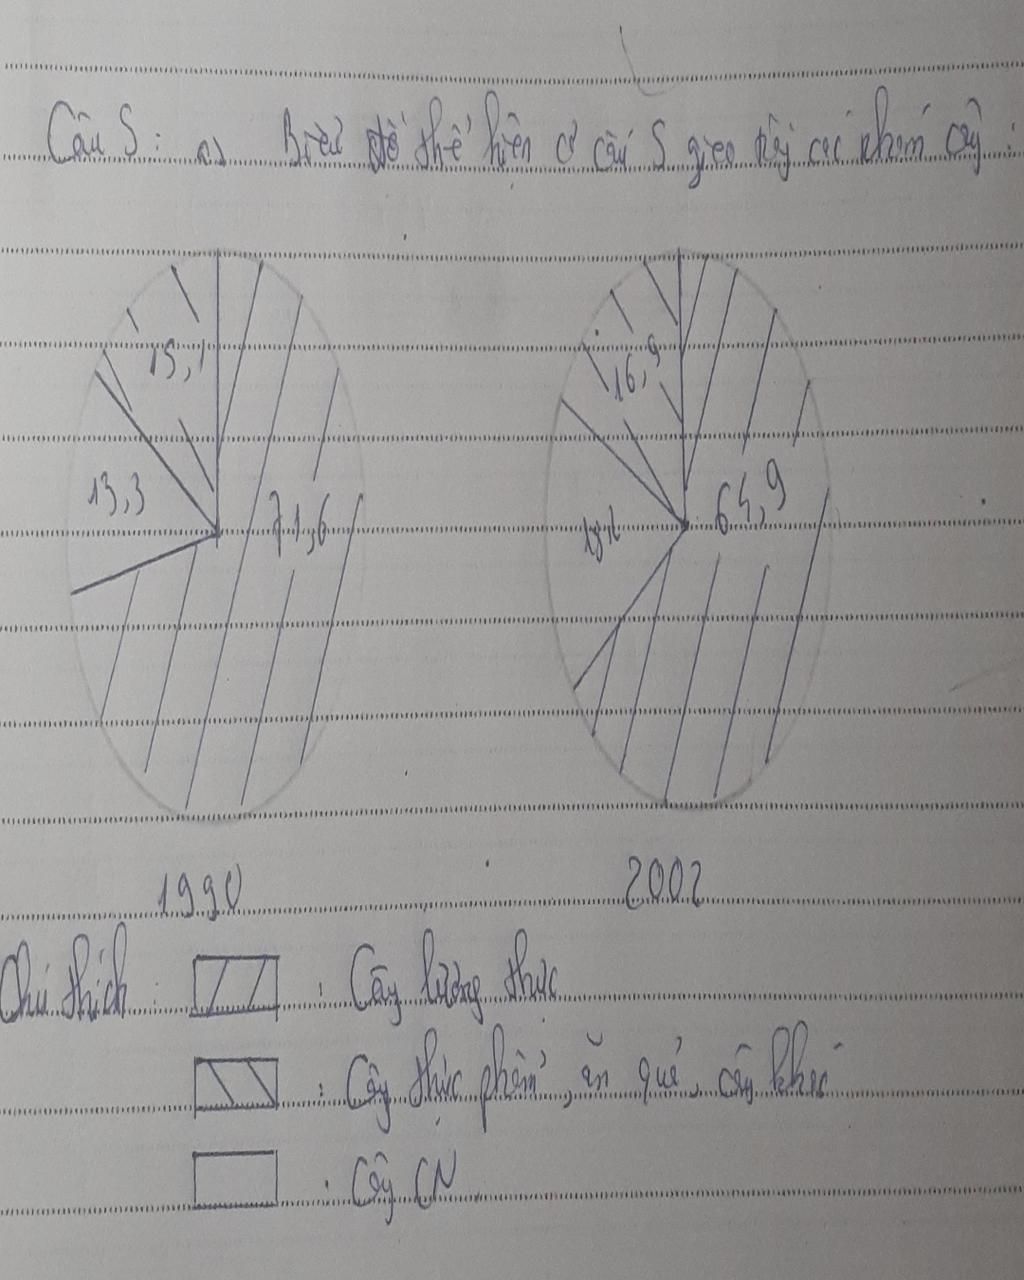 Câu 5: a) Biểu đồ thể hiện cơ cấu S gieo trồng các nhóm cây:
15,1
16,9
13,3
71,6
64,9
1990
2002
Chú thích: : Cây lương thực
: Cây thực phẩm, ăn quả, cây khác
: Cây CN